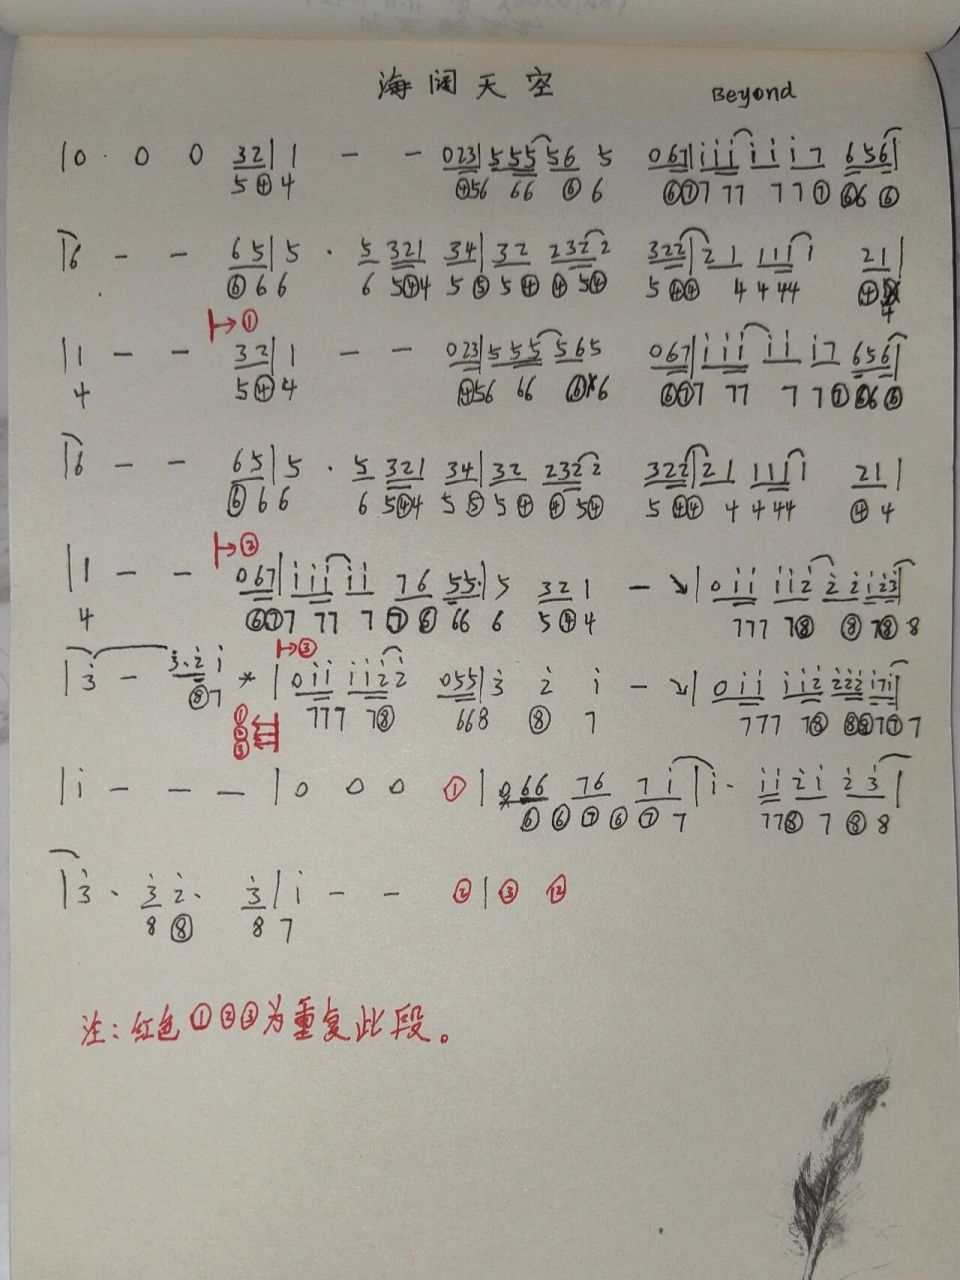 海阔天空 Beyond
|0 · 0 0 32|1 – – 023|555 56 5 067|i i i i i i 7 656|
5④4 ④56 66 ⑥6 ⑥⑦7 77 77⑦ ⑥6⑥
|6 – – 65|5 · 5 321 34|32 2322 322|21 1111 21|
⑥66 6 5④4 5⑤5④ ④5④ 5④④ 4 444 ④
4
①
|1 – – 32|1 – – 023|555 565 067|i i i i i i7 656|
4 5④4 ④56 66 ⑥6 ⑥⑦7 77 77⑦ ⑥6⑥
|6 – – 65|5 · 5 321 34|32 2322 322|21 1111 21|
⑥66 6 5④4 5⑤5④ ④5④ 5④④ 4 444 ④4
②
|1 – – 067|i i i i i 76 55·|5 321 – ↘|0 i i i i 2̇ 2̇ 2̇ i 2̇ 3̇|
4 ⑥⑦7 77 7⑦⑥ 66 6 5④4 777 7⑧ ⑧7⑧8
③
|3̇ – 3̇·2̇ i * |0 i i i i 2̇ 2̇ 055|3̇ 2̇ i – ↘|0 i i i i 2̇ 2̇2̇2̇ i7i|
⑧7 777 7⑧ 668 ⑧ 7 777 7⑧ 8⑧7⑦7
①
②
③
|i – – –|0 0 0 ①|066 76 7 i|i· i i 2̇ i 2̇ 3̇|
* ⑥⑥⑦⑥⑦7 77⑧ 7⑧8
|3̇ · 3̇ 2̇· 3̇|i – – ②|③ ⑫
8⑧ 8 7
注：红色①②③为重复此段。